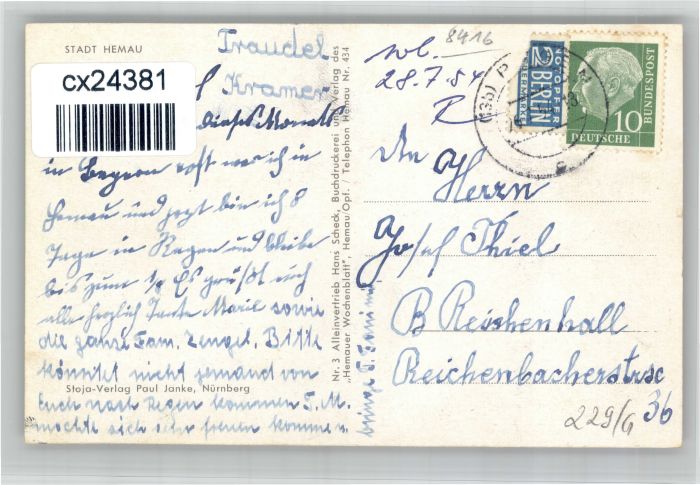 STADT HEMAU
cx24381
Traudel
Kramer
dieses Monats
in Bayern oft war ich in
Hemau und jetzt bin ich 8
Tage in Regen und bleibe
bis zum 1/9 Es grüßt euch
alle herzlich Tante Marie sowie
die ganze Fam. Zengel. Bitte
könntet nicht jemand von
Stoja-Verlag Paul Janke, Nürnberg
Euch nach Regen kommen T. M.
möchte sich sehr freuen kommen
bringe
Nr. 3 Alleinvertrieb Hans Scheck, Buchdruckerei und Verlag des
„Hemauer Wochenblatt", Hemau/Opf. / Telephon Hemau Nr. 434
8416
28.7.54
R
2 NOTOPFER
BERLIN
STEUERMARKE
DEUTSCHE
BUNDESPOST
10
An
Herrn
Josef Thiel
B Reichenhall
Reichenbacherstrase
36
229/G